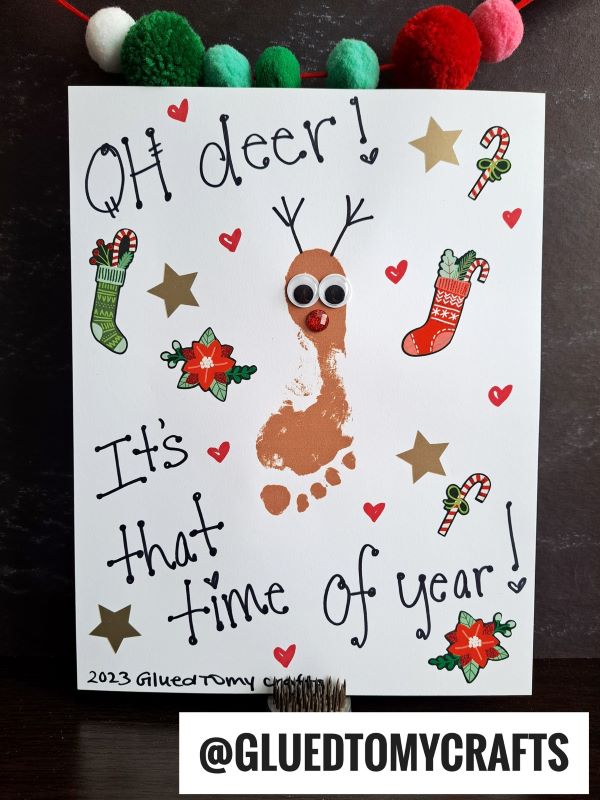 OH deer!
It's
that
time of year!
2023 GluedTOmy crafts
@GLUEDTOMYCRAFTS